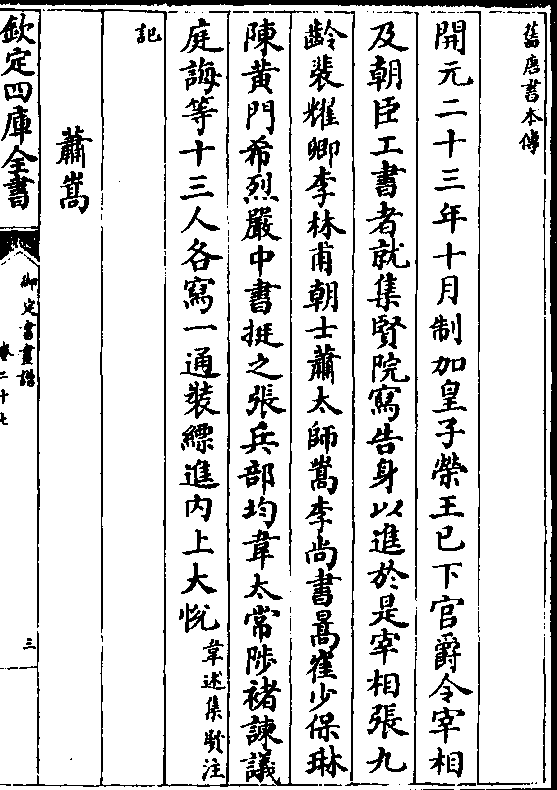 舊唐書本傳
開元二十三年十月制加皇子榮王已下官爵令宰相
及朝臣工書者就集賢院寫告身以進於是宰相張九
齡裴耀卿李林甫朝士蕭太師嵩李尚書暠崔少保琳
陳黄門希烈嚴中書挺之張兵部均韋太常陟褚諫議
庭誨等十三人各寫一通裝縹進内上大悦韋述集賢注
記
蕭嵩
欽定四庫全書
御定書畫譜
卷二十七
三